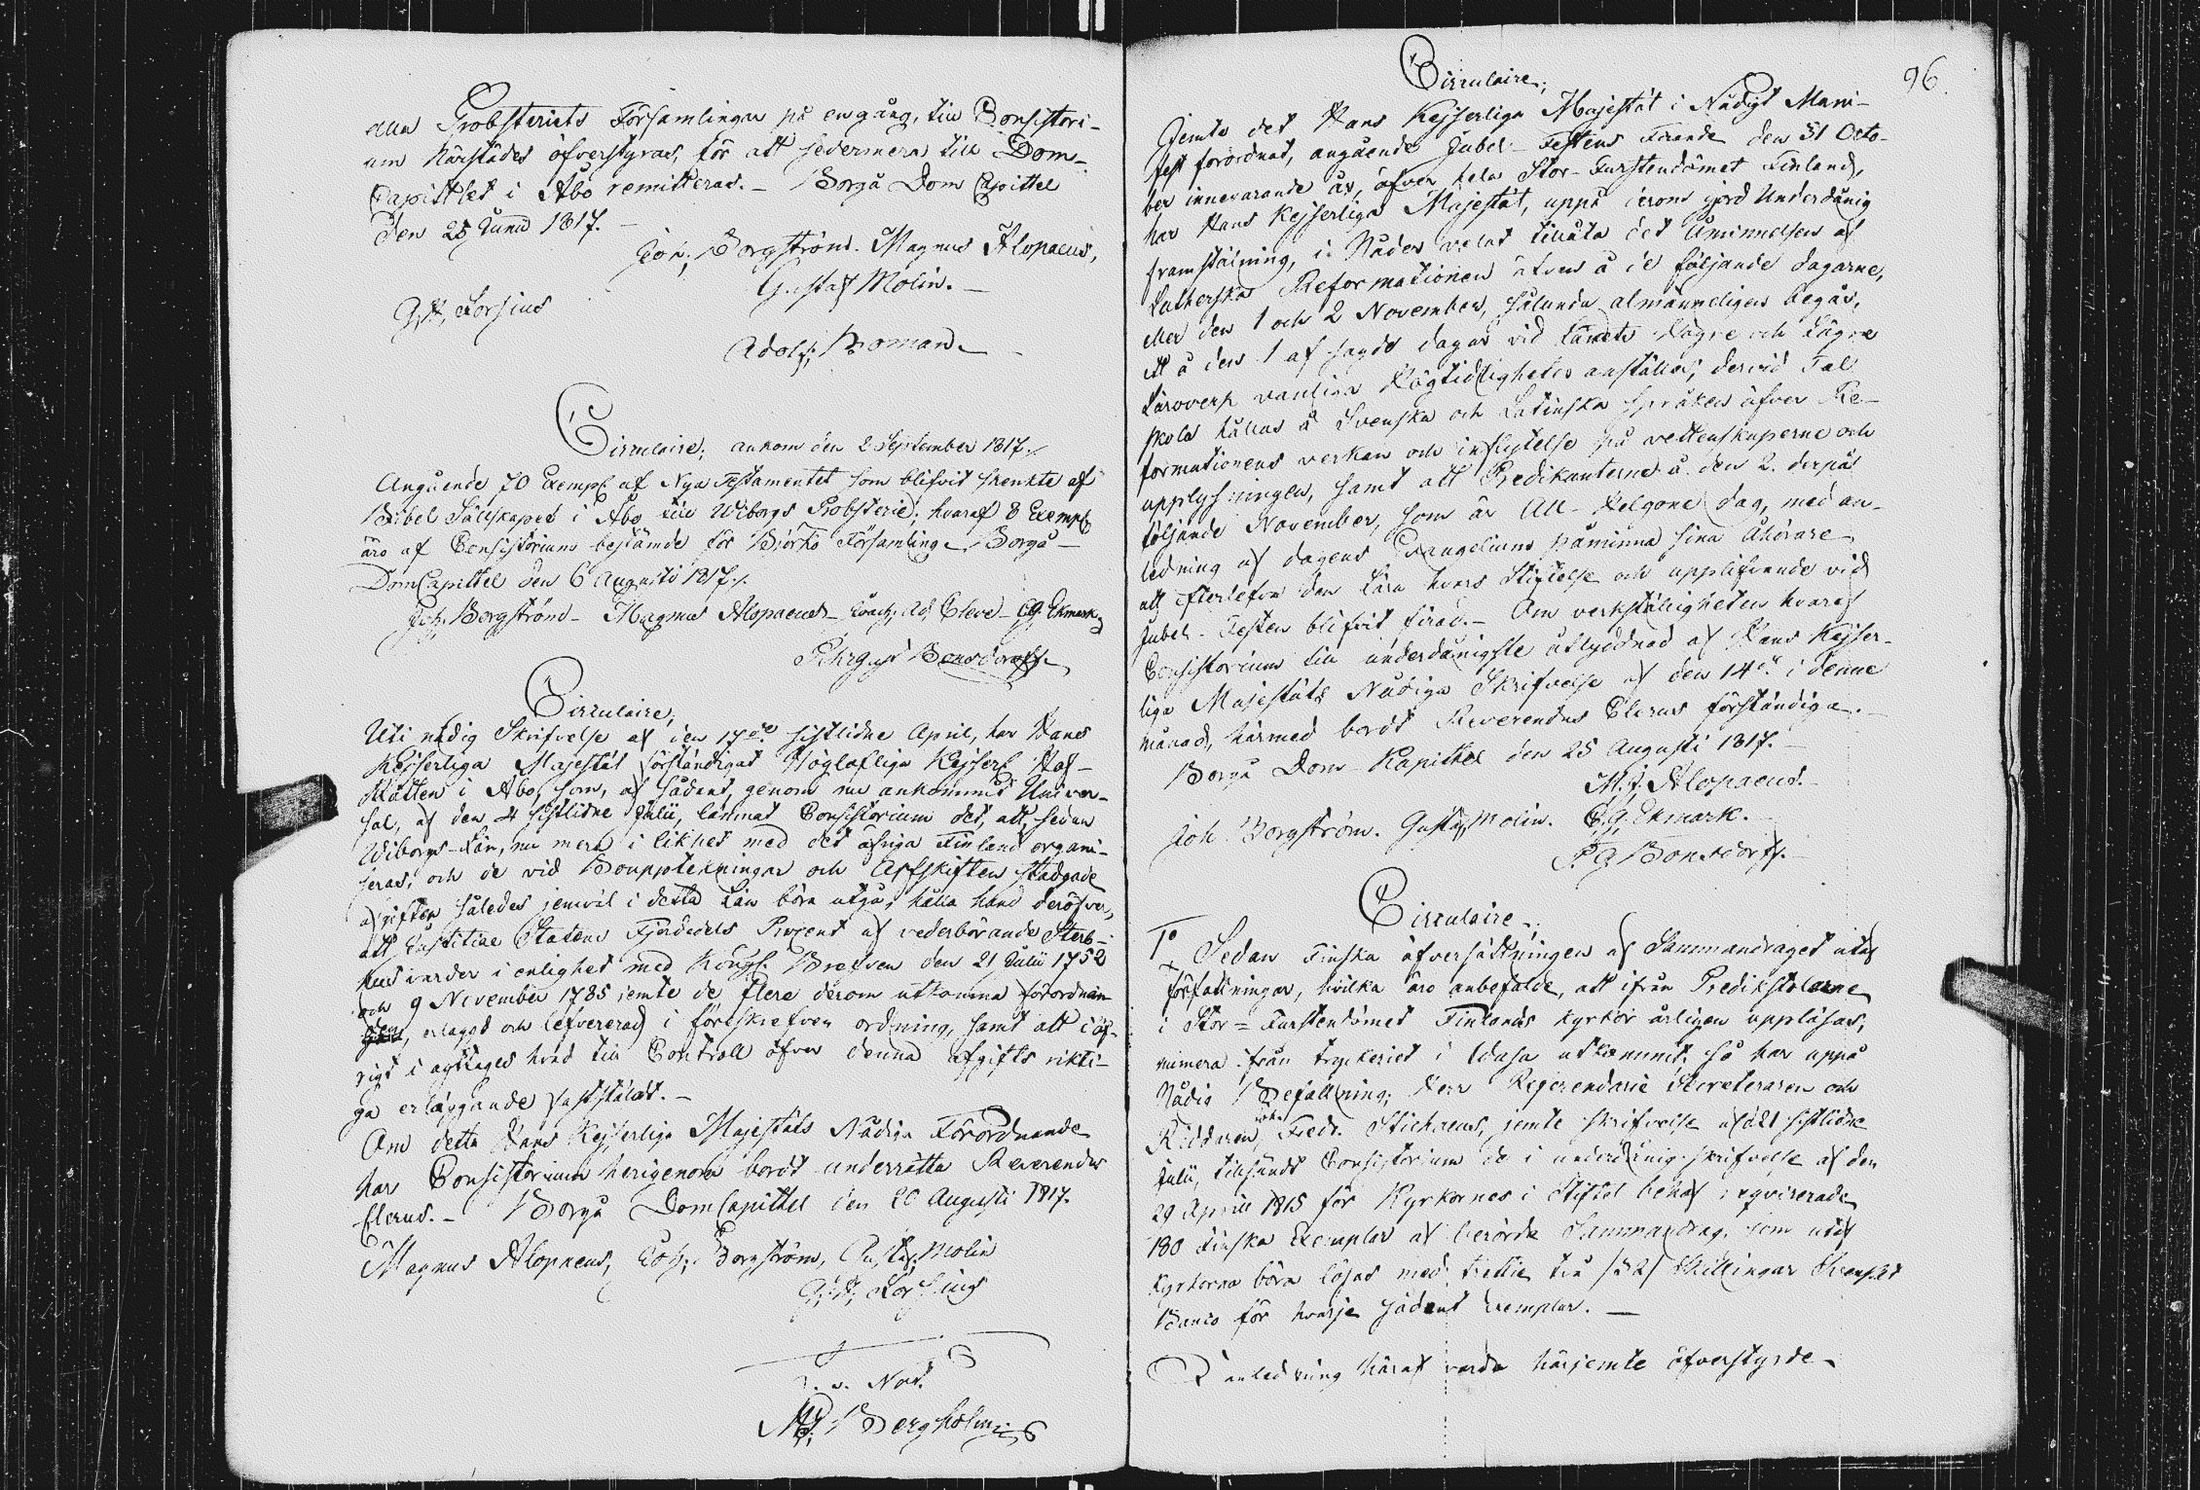 alla Probsteriets Församlingar på engång, till Consistori-
um härstädes öfverstyras, för att sedermera till Dom-
Capittlet i Åbo remitteras. – Borgå Dom Capittel
den 25 Junii 1817. –
Joh; Borgström. Magnus Alopaeus,
Gustaf Molin. –
G; A; Forsius
Adolf; Boman. –
Circulaire; ankom den 2 September 1817.
Angående 70 Exempl af Nya Testamentet som blifvit skenkte af
Bibel Sälskapet i Åbo till Wiborgs Probsterie; hvaraf 8 Exempl
äro af Consistorium bestämde för Björkö Församling. Borgå –
Dom Capittel den 6 Augusti 1817.
Joh; Borgström – Magnus Alopaeus – Ad; Cleve – C.G. Ekmark
Pehr Gust Bonsdorff
Circulaire,
Uti nådig Skrifvelse af den 17de sistlidne April, har Hans
Kejserliga Majestät förständigat Höglofliga Kejserl Hof-
Rätten i Åbo, som, af sådant, genom nu ankommit Univer-
sal, af den 4 sistlidne Julii, lämnat Consistorium det, att, sedan
Wiborgs-Län, nu mera i likhet med det öfriga Finland organi-
seras, och de vid Bouppteckningar och Arfskiften stadgade
afgifter således jemväl i detta Län böra utgå, hålla hand deröfver,
att Justitiae Statens Fjerdedels Procent af vederbörande Sterb-
hus varder i enlighet med Kongl. Brefven den 21 Julii 1752
och 9 November 1785 jemte de flere derom utkomna förordnan
den, erlaggd och lefvererad i föreskrefven ordning, samt att i öf-
rigt i agttages hvad till Controll öfver denna afgifts rikti-
ga erläggande faststäldt. –
Om detta Hans Kejserliga Majestäts Nådiga Förordnande
har Consistorium herigenom bordt underrätta Reverendus
Clerus. – Borgå Dom Capittel den 20 Augusti 1817.
Magnus Alopaeus, Joh; Borgström, Gustaf; Molin
G; A; Forsius
Not.
Bergholm
96.
Circulaire,
Jemte det Hans Kejserliga Majestät i Nådigt Mani-
fest förordnat, angående Jubel-Festens Firande den 31 Octo-
ber innevarande år, öfver hela Stor-Furstendömet Finland,
har Hans Kejserliga Majestät, uppå derom gjord Underdånig
framställning, i Nåder velat tillåta det Åminnelsen af
Lutherska Reformationen äfven å de följande dagarne,
eller den 1 och 2 November, sålunda almänneligen begås,
att å den 1 af sagde dagar vid Landets högre och lägre
Läroverk vanliga Högtidligheter anställas, dervid Tal
skola hållas å Svenska och Latinska språken öfver Re-
formationens verkan och inflytelse på vettenskaperne och
upplysningen, samt att Predikanterne å den 2. derpå
följande November, som är All-Helgone dag, med an-
ledning af dagens Evangelium påminna sina Åhörare
att efterlefva den Lära hvars Stiftelse och upplifvande vid
Jubel-Festen blifvit firad. – Om verkställigheten hvaraf
Consistorium till underdånigste åtlyddnad af Hans Kejser-
liga Majestäts Nådiga Skrifvelse af den 14de i denne
månad, härmed bordt Reverendus Clerus förständiga. –
Borgå Dom Kapittel den 25 Augusti 1817. –
M. J. Alopaeus. –
Joh. Borgström. Gustaf; Molin. C. G. Ekmark. –
P. G Bonsdorff. –
Circulaire,
1o Sedan Finska öfversättningen af Sammandraget utaf
författningar, hvilka äro anbefalde, att ifrån Predikstolarne
i Stor=Furstendömet Finlands kyrkor årligen uppläsas,
numera ifrån tryckeriet i Wasa utkommit, så har uppå
Nådig Befallning, Herr Referendarie Secreteraren och
Riddaren, Joh. Fredr. Stichaeus, jemte skrifvelse af sistlidne
Julii, tillsändt Consistorium de i underdånig skrifvelse af den
29 Aprill 1815 för Kyrkornes i Stiftet behof reqvirerade
180 Finska Exemplar af berörde Sammandrag, som utaf
Kyrkorna böra lösas med trettie två /32/ Skillingar Svenskt
Banco för hvarje sådant Exemplar. –
I anledning häraf varda härjemte öfverstyrde